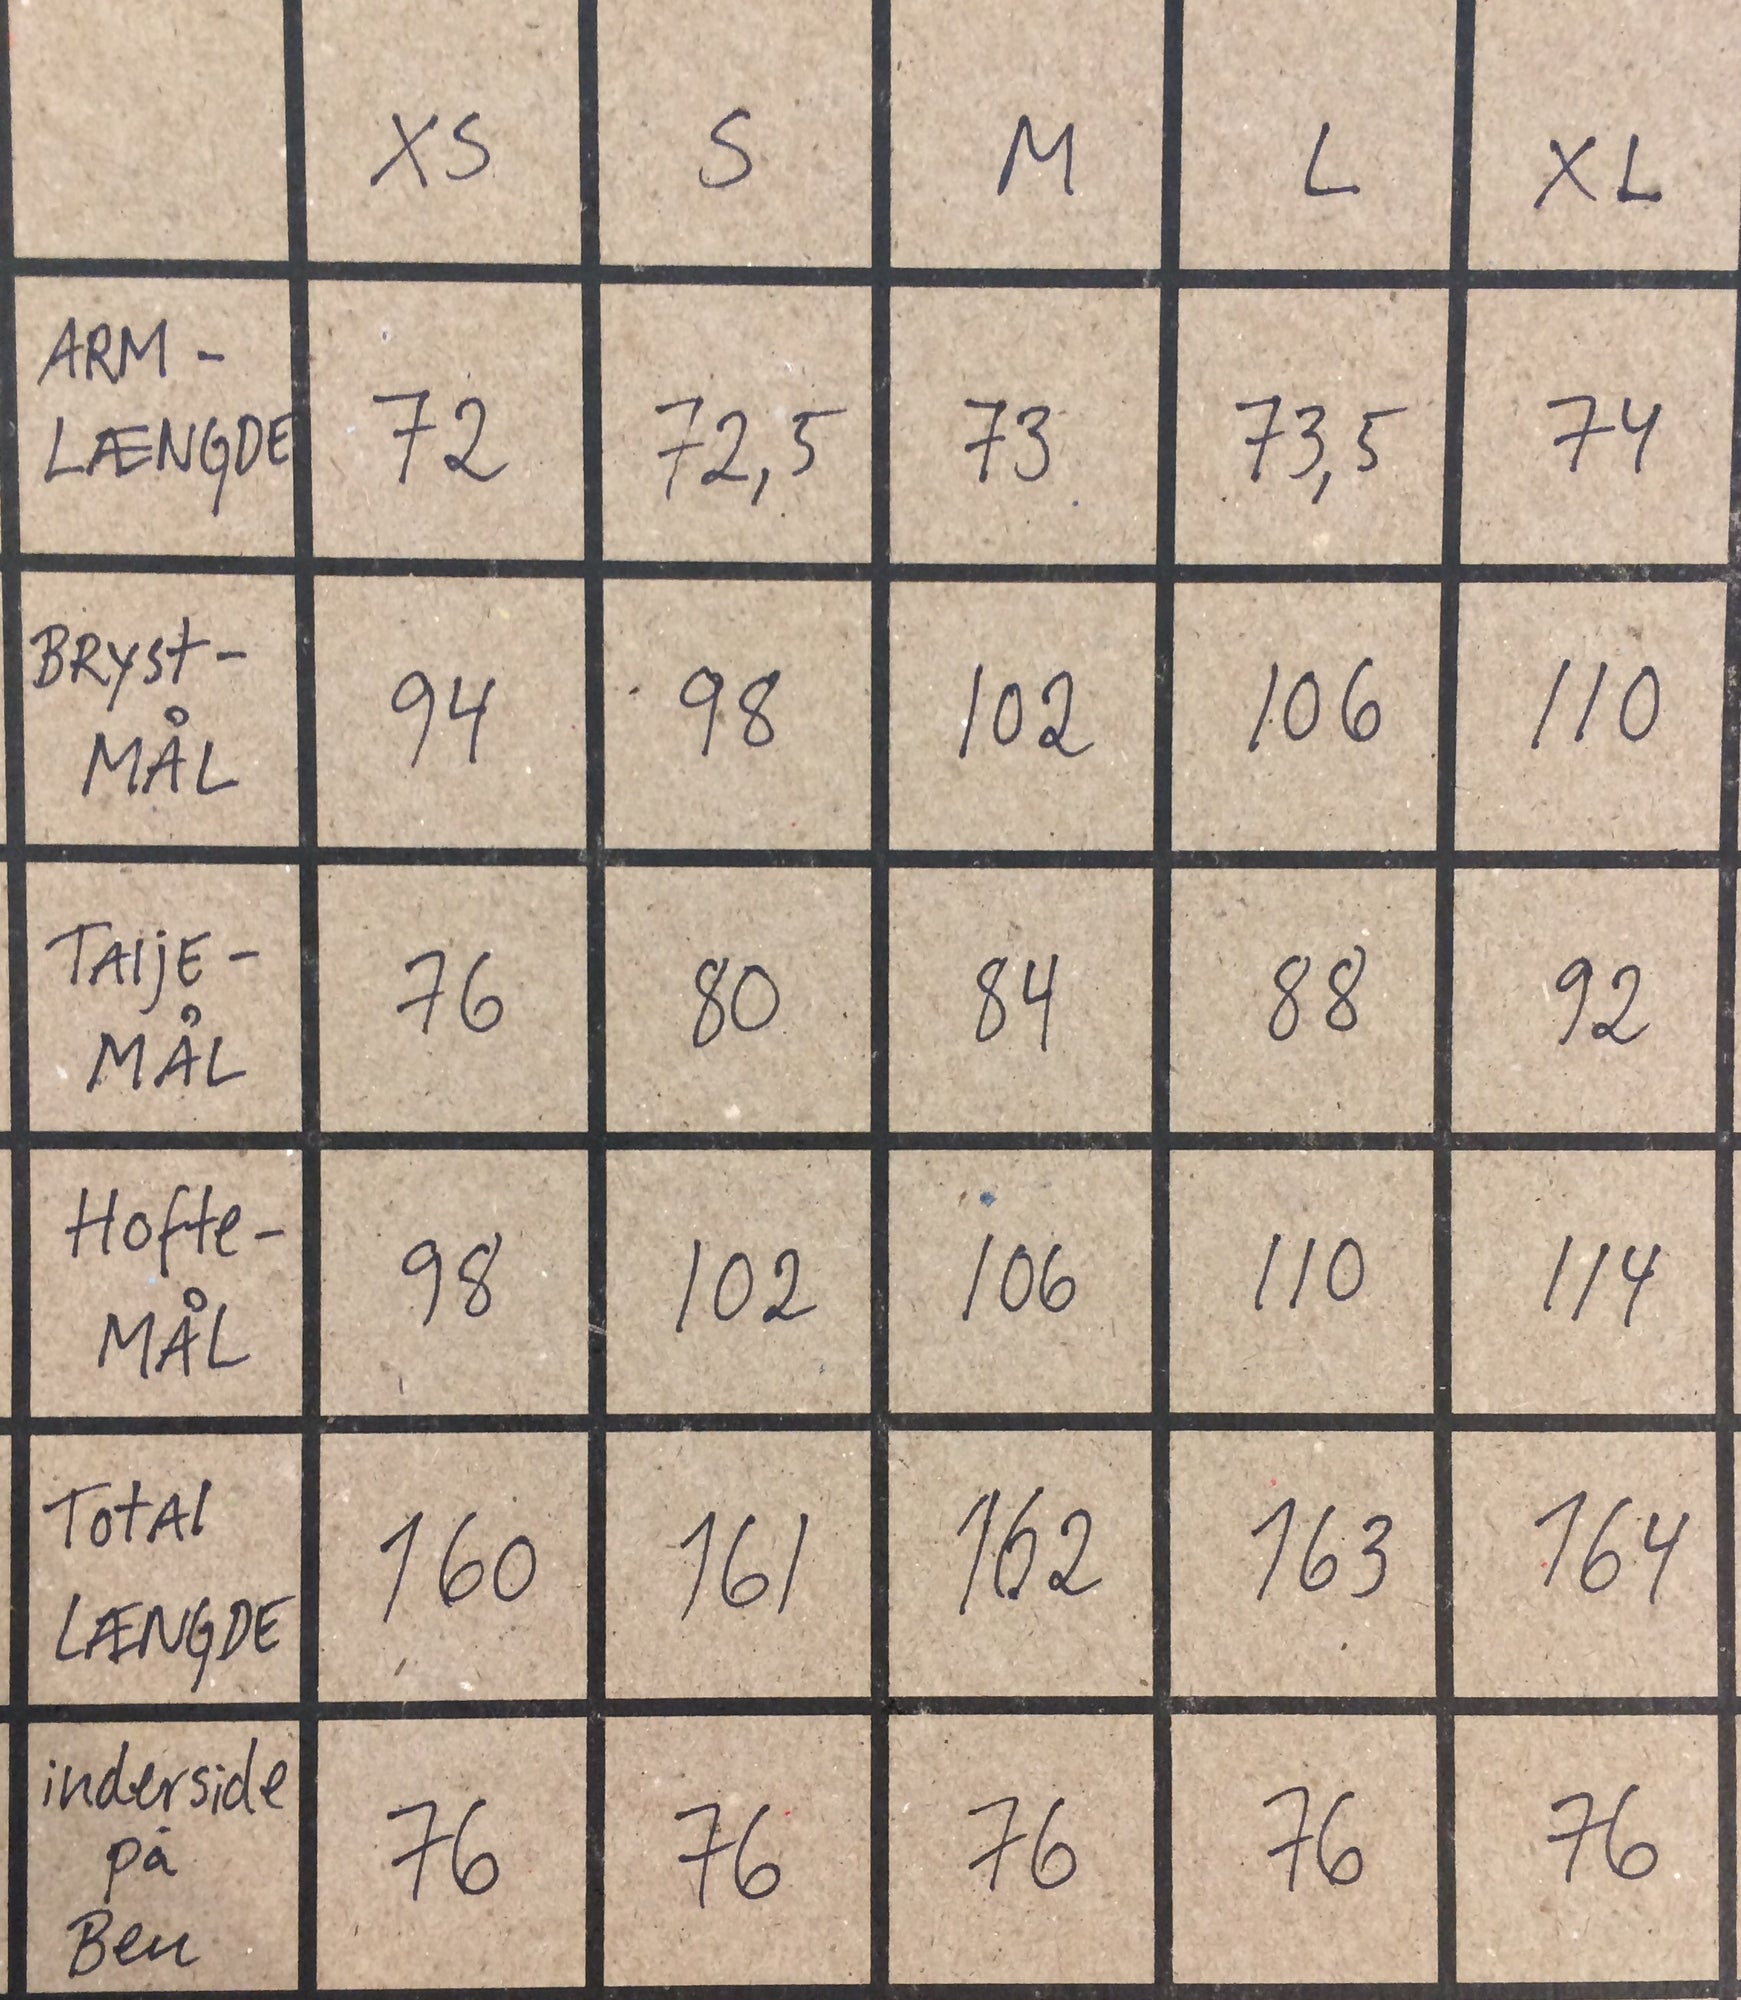 XS S M L XL
ARM-
LÆNGDE 72 72,5 73 73,5 74
BRYst-
MÅL 94 98 102 106 110
TAIjE-
MÅL 76 80 84 88 92
Hofte-
MÅL 98 102 106 110 114
TOtAl
LÆNGDE 160 161 162 163 164
inderside
på 76 76 76 76 76
Ben